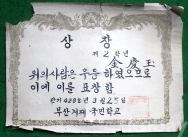 상장
제2학년
金慶玉
위의사람은 우등 하였으므로
이에 이를 표창함
단기 4288年 3月25日
부산거제 국민학교